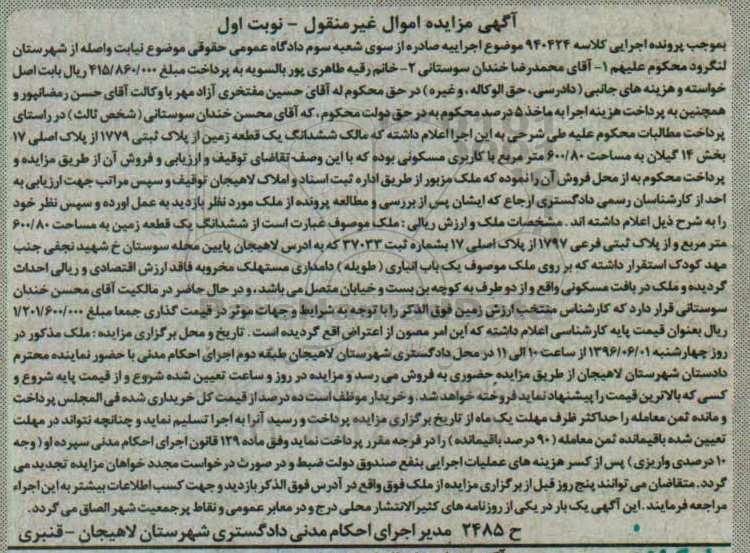 آگهی مزایده اموال غیرمنقول - نوبت اول
بموجب پرونده اجرایی کلاسه ۹۴۰۴۲۴ موضوع اجراییه صادره از سوی شعبه سوم دادگاه عمومی حقوقی موضوع نیابت واصله از شهرستان
لنگرود محکوم علیهم ۱- آقای محمدرضا خندان سوستانی ۲- خانم رقیه طاهری پور بالسویه به پرداخت مبلغ ۴۱۵/۸۶۰/۰۰۰ ریال بابت اصل
خواسته و هزینه های جانبی (دادرسی، حق الوکاله، و غیره) در حق محکوم له آقای حسین مفتخری آزاد مهر با وکالت آقای حسن رمضانپور و
همچنین به پرداخت هزینه اجرا به ماخذ ۵ درصد محکوم به در حق دولت محکوم، که آقای محسن خندان سوستانی (شخص ثالث) در راستای
پرداخت مطالبات محکوم علیه طی شرحی به این اجرا اعلام داشته که مالک ششدانگ یک قطعه زمین از پلاک ثبتی ۱۷۷۹ از پلاک اصلی ۱۷
بخش ۱۴ گیلان به مساحت ۶۰۰/۸۰ متر مربع با کاربری مسکونی بوده که با این وصف تقاضای توقیف و ارزیابی و فروش آن از طریق مزایده و
پرداخت محکوم به از محل فروش آن را نموده که ملک مزبور از طریق اداره ثبت اسناد و املاک لاهیجان توقیف و سپس مراتب جهت ارزیابی به
احد از کارشناسان رسمی دادگستری ارجاع که ایشان پس از بررسی و مطالعه پرونده از ملک مورد نظر بازدید به عمل اورده و سپس نظر خود
را به شرح ذیل اعلام داشته اند. مشخصات ملک و ارزش ریالی: ملک موصوف عبارت است از ششدانگ یک قطعه زمین به مساحت ۶۰۰/۸۰
متر مربع و از پلاک ثبتی فرعی ۱۷۹۷ از پلاک اصلی ۱۷ بشماره ثبت ۳۷۰۳۳ که به ادرس لاهیجان پایین محله سوستان خ شهید نجفی جنب
مهد کودک استقرار داشته که بر روی ملک موصوف یک باب انباری (طویله) دامداری مستهلک مخروبه فاقد ارزش اقتصادی و ریالی احداث
گردیده و ملک در بافت مسکونی واقع و از دو طرف به کوچه بن بست و خیابان متصل می باشد، و در حال حاضر در مالکیت آقای محسن خندان
سوستانی قرار دارد که کارشناس منتخب ارزش زمین فوق الذکر را با توجه به شرایط و جهات موثر در قیمت گذاری جمعا مبلغ ۱/۲۰۱/۶۰۰/۰۰۰
ریال بعنوان قیمت پایه کارشناسی اعلام داشته که این امر مصون از اعتراض اقع گردیده است. تاریخ و محل برگزاری مزایده: ملک مذکور در
روز چهارشنبه ۱۳۹۶/۰۶/۰۱ از ساعت ۱۰ الی ۱۱ در محل دادگستری شهرستان لاهیجان طبقه دوم اجرای احکام مدنی با حضور نماینده محترم
دادستان شهرستان لاهیجان از طریق مزایده حضوری به فروش می رسد و مزایده در روز و ساعت تعیین شده شروع و از قیمت پایه شروع و
کسی که بالاترین قیمت را پیشنهاد نماید فروخته خواهد شد. و خریدار موظف است ده درصد از قیمت کل خریداری شده فی المجلس پرداخت
و مانده ثمن معامله را حداکثر ظرف مهلت یک ماه از تاریخ برگزاری مزایده پرداخت و رسید آنرا به اجرا تسلیم نماید و چنانچه نتواند در مهلت
تعیین شده باقیمانده ثمن معامله (۹۰ درصد باقیمانده) را در فرجه مقرر پرداخت نماید وفق ماده ۱۲۹ قانون اجرای احکام مدنی سپرده او (وجه
۱۰ درصدی واریزی) پس از کسر هزینه های عملیات اجرایی بنفع صندوق دولت ضبط و در صورت درخواست مجدد خواهان مزایده تجدید می
گردد. متقاضیان می توانند پنج روز قبل از برگزاری مزایده از ملک فوق واقع در آدرس فوق الذکر بازدید و جهت کسب اطلاعات بیشتر به این اجراء
مراجعه فرمایند. این آگهی یک بار در یکی از روزنامه های کثیرالانتشار محلی درج و در معابر عمومی و نقاط پرجمعیت شهر الصاق می گردد.
ح ۲۴۸۵ مدیر اجرای احکام مدنی دادگستری شهرستان لاهیجان - قنبری